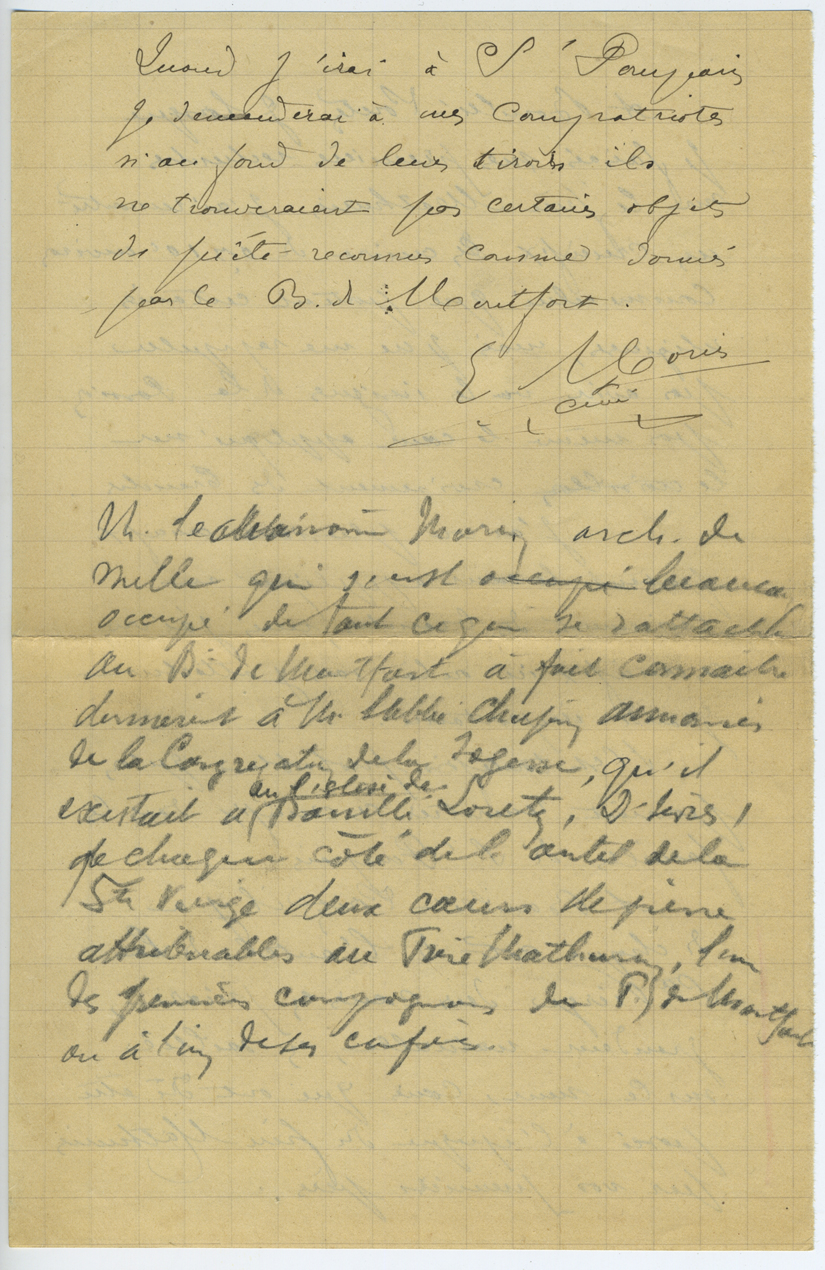 Quand j'irai à St Pompain
je demanderai à mes compatriotes
si au fond de leurs tiroirs ils
ne trouveraient pas certains objets
de piété reconnus comme donnés
par le B. de Montfort.
E Moris
curé
M. le chanoine Moris, arch. de
Melle qui s'est occupé beaucou
occupé de tout ce qui se rattache
au Bx de Montfort a fait connaitre
dernièrement à M. l'abbé
de la Congrégation de la Sagesse, qu'il
en l'église de
existait à Bouillé Loretz, D. Sèvres,
de chaque côté de l'autel de la
Ste Vierge deux cœurs de pierre
attribuables au Frère Mathurin, l'un
des premiers compagnons du P. de Montfort
ou à l'un de ses confrères.